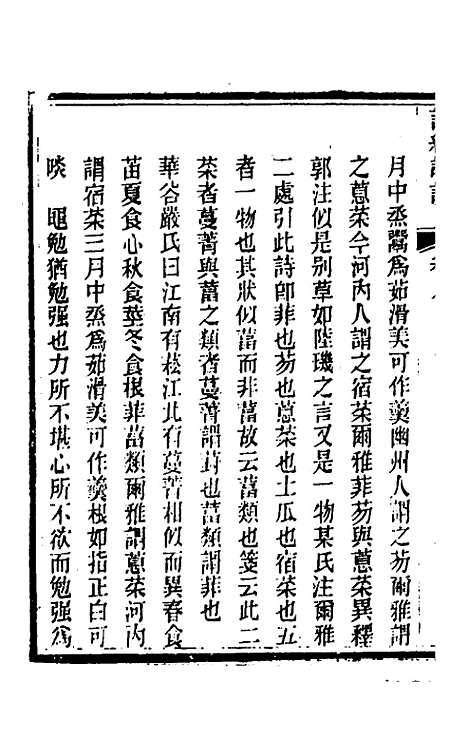 月中烝鬻爲茹滑美可作羹幽州人謂之芴爾雅謂
之蒠菜今河內人謂之宿菜爾雅菲芴與蒠菜異釋
郭注似是別草如陸璣之言又是一物某氏注爾雅
二處引此詩卽菲也芴也蒠菜也土瓜也宿菜也五
者一物也其狀似葍而非葍故云葍類也箋云此二
菜者蔓菁與葍之類者蔓菁謂葑也葍類謂菲也
華谷嚴氏曰江南有菘江北有蔓菁相似而異春食
苗夏食心秋食莖冬食根菲葍類爾雅謂蒠菜河內
謂宿菜三月中烝爲茹滑美可作羹根如指正白可
啖　黽勉猶勉强也力所不堪心所不欲而勉强爲